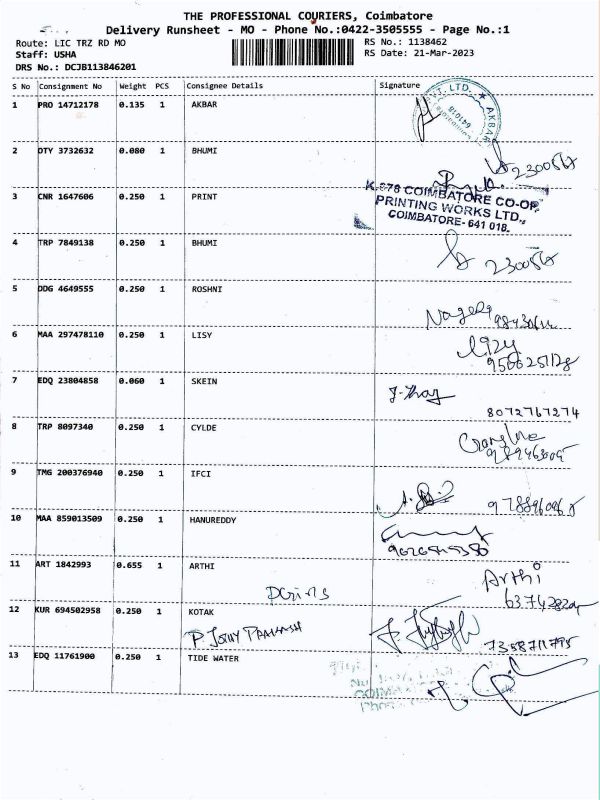 THE PROFESSIONAL COURIERS, Coimbatore
Delivery Runsheet - MO - Phone No.:0422-3505555 - Page No.:1
Route: LIC TRZ RD MO
RS No.: 1138462
Staff: USHA
RS Date: 21-Mar-2023
DRS No.: DCJB113846201
S No Consignment No Weight PCS Consignee Details Signature
1 PRO 14712178 0.135 1 AKBAR
VT. LTD. ★ AKBAR
641018
2 DTY 3732632 0.080 1 BHUMI
3 CNR 1647606 0.250 1 PRINT
K.678 COIMBATORE CO-OP.
PRINTING WORKS LTD.,
COIMBATORE- 641 018.
4 TRP 7849138 0.250 1 BHUMI
5 DDG 4649555 0.250 1 ROSHNI
6 MAA 297478110 0.250 1 LISY
7 EDQ 23804858 0.060 1 SKEIN
8072767274
8 TRP 8097340 0.250 1 CYLDE
9 TMG 200376940 0.250 1 IFCI
10 MAA 859013509 0.250 1 HANUREDDY
11 ART 1842993 0.655 1 ARTHI
Arthi
12 KUR 694502958 0.250 1 KOTAK
7358711795
13 EDQ 11761900 0.250 1 TIDE WATER